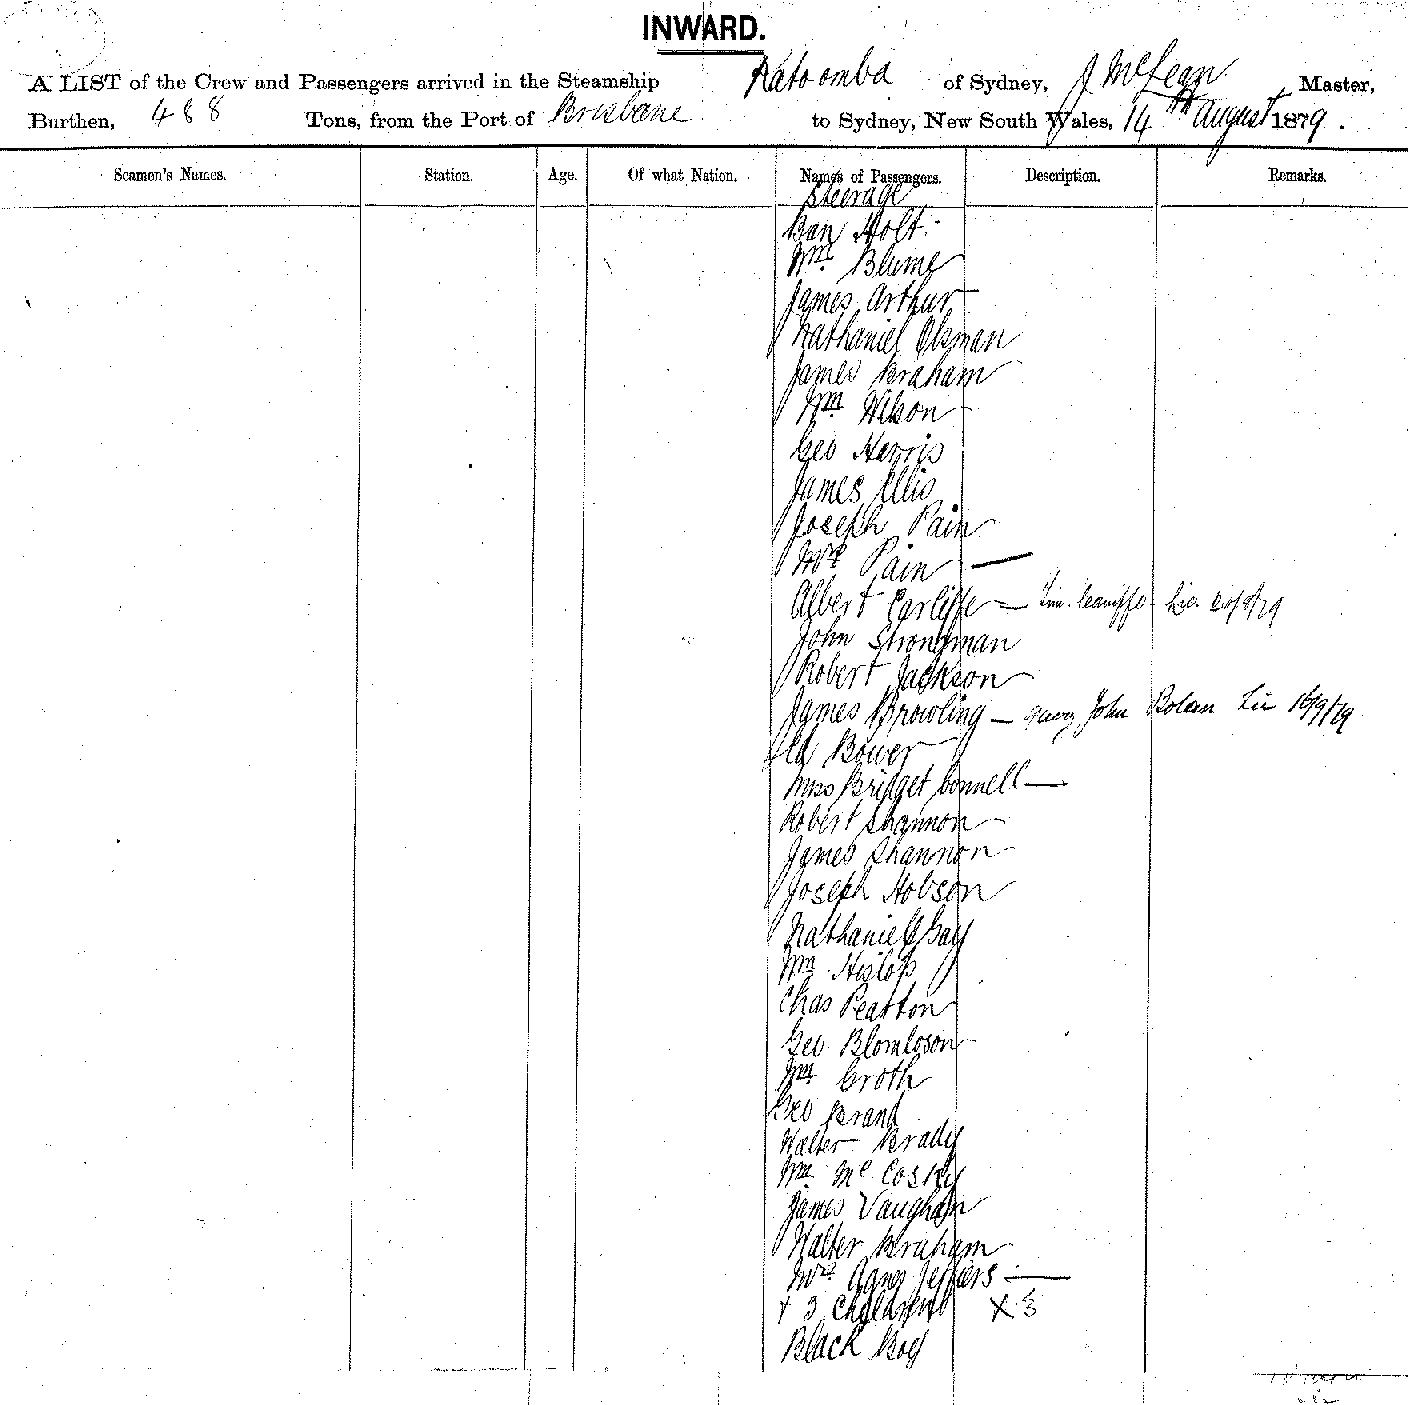 INWARD.
A LIST of the Crew and Passengers arrived in the Steamship Katoomba of Sydney, J McLean, Master,
Burthen, 488 Tons, from the Port of Brisbane to Sydney, New South Wales, 14th August 1879.
Seamen's Names. Station. Age. Of what Nation. Names of Passengers. Description. Remarks.
Steerage
Ben Holt
Wm. Blume
James Arthur
Nathaniel Elsman
James Braham
Wm Wilson
Geo Harris
James Ellis
Joseph Pain
Mrs Pain —
Albert Carliffe — Lie. 20/9/79
John Strongman
Robert Jackson
James Browling — query John Bolan Lie 16/9/79
Ed Bower
Miss Bridget Connell —
Robert Shannon
James Shannon
Joseph Hobson
Nathaniel Gay
Wm Hislop
Chas Peatton
Geo Blomloson
Wm Croth
Geo Brand
Walter Brady
Wm McCosky
James Vaughan
Walter Braham
Mrs Agnes Jeffers —
+ 3 Children X 3
Black Boy